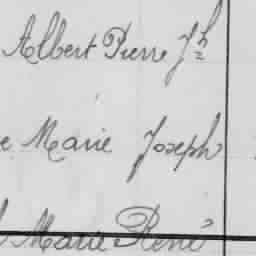 Albert Pierre Jh
e Marie Joseph
l Marie René